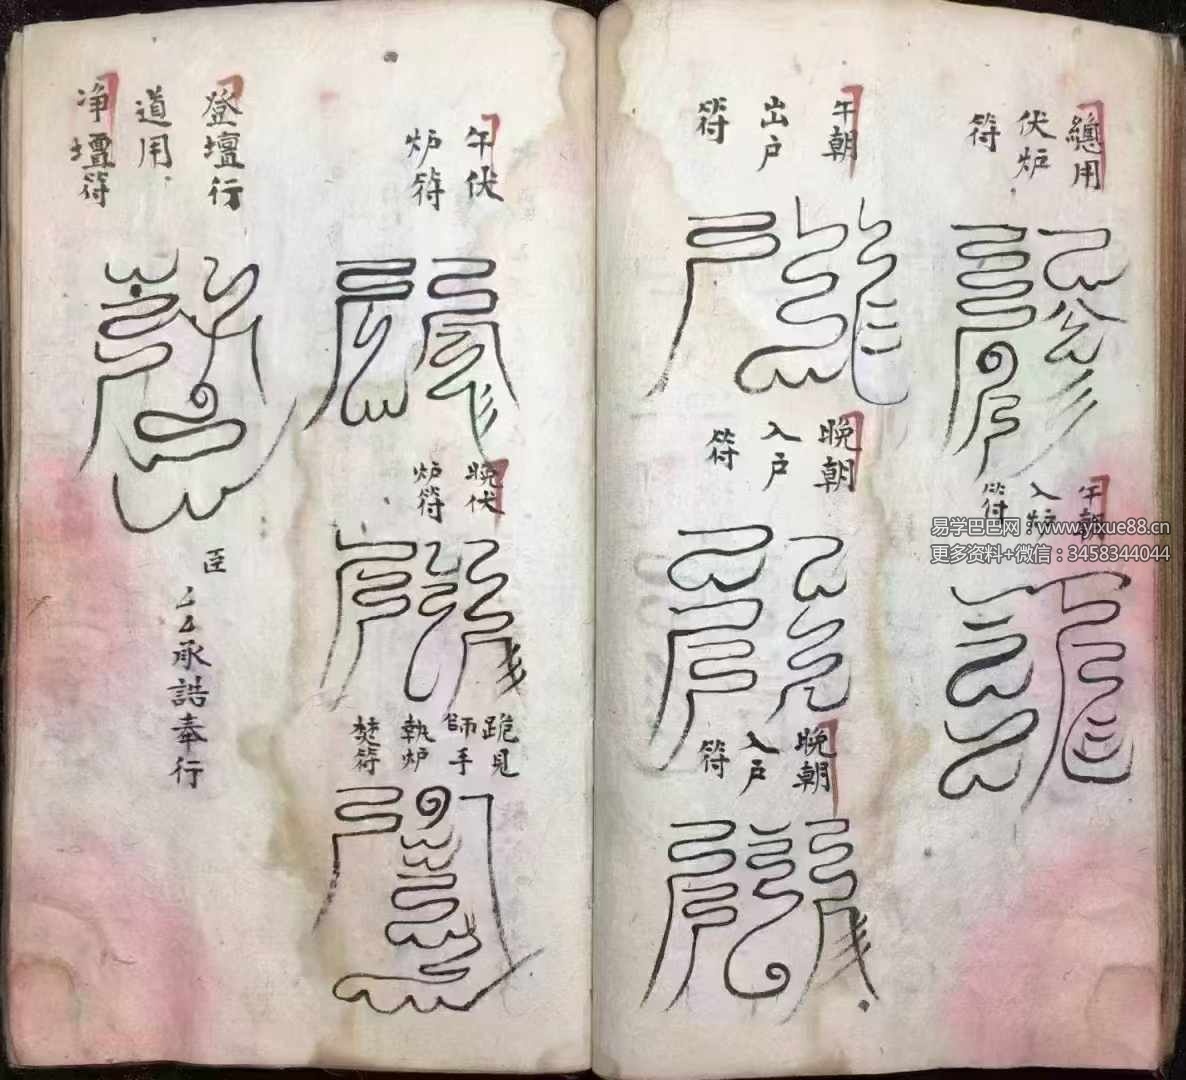 總用
伏炉
符
午朝
入炉
符
午朝
出户
符
晚朝
入户
符
晚朝
入户
符
午伏
炉符
晚伏
炉符
跪見
師手
執炉
焚符
登壇行
道用
净壇符
臣
承誥奉行
易学巴巴网：www.yixue88.cn
更多资料+微信：3458344044